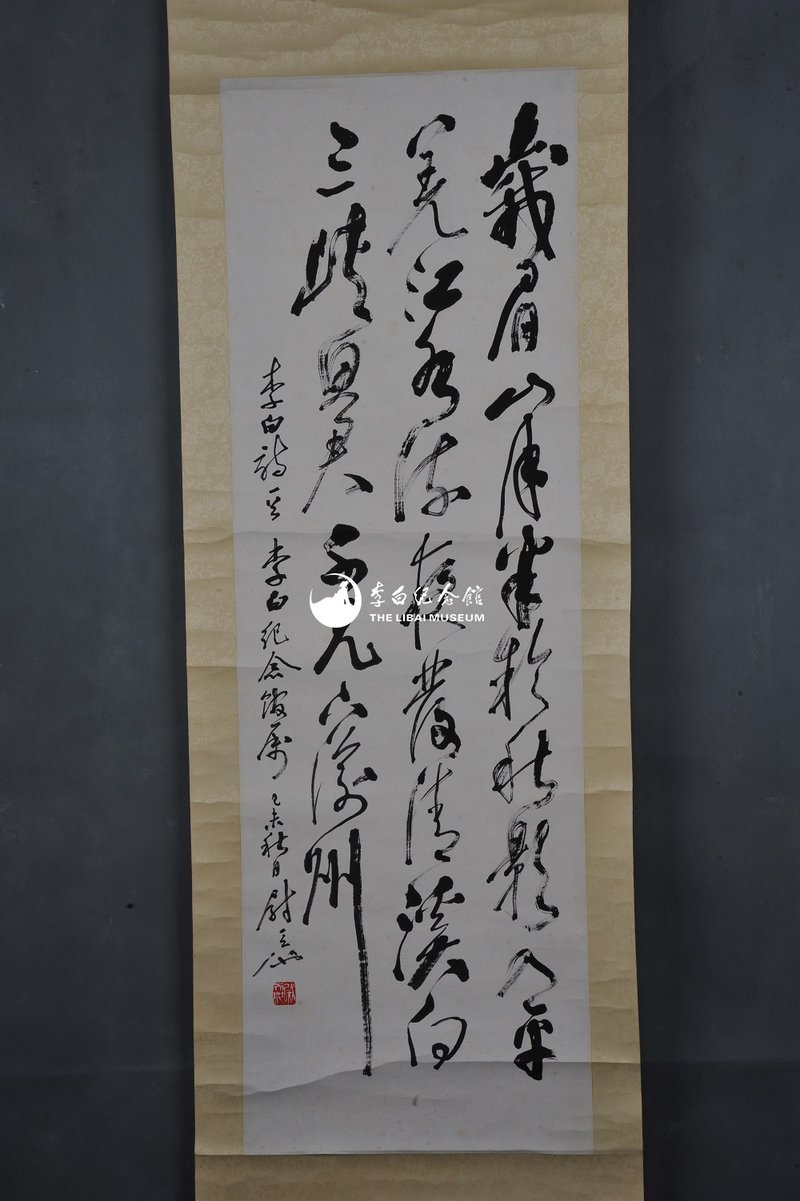 峩眉山月半輪秋影入平
羌江水流夜發清溪向
三峽思君不見下渝州
李白詩一首 李白紀念館屬 己未秋日 尉
李白纪念館
THE LIBAI MUSEUM